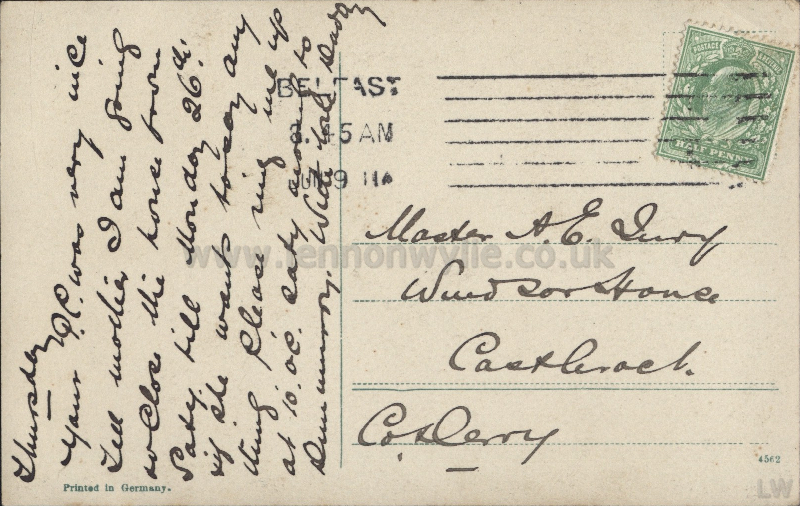 Thursday
Your P.C. was very nice
Tell mother I am going
to close the house from
Saty till Monday 26th:
if she wants to say any
thing please ring me up
at 10. oC. Saty morning to
Dunmurry. With love Daddy
BELFAST
8.45 AM
9 11A
POSTAGE
HALF PENNY
Master A. E. Jury
Windsor House
Castlerock.
Co. Derry
www.lennonwylie.co.uk
Printed in Germany.
4562
LW